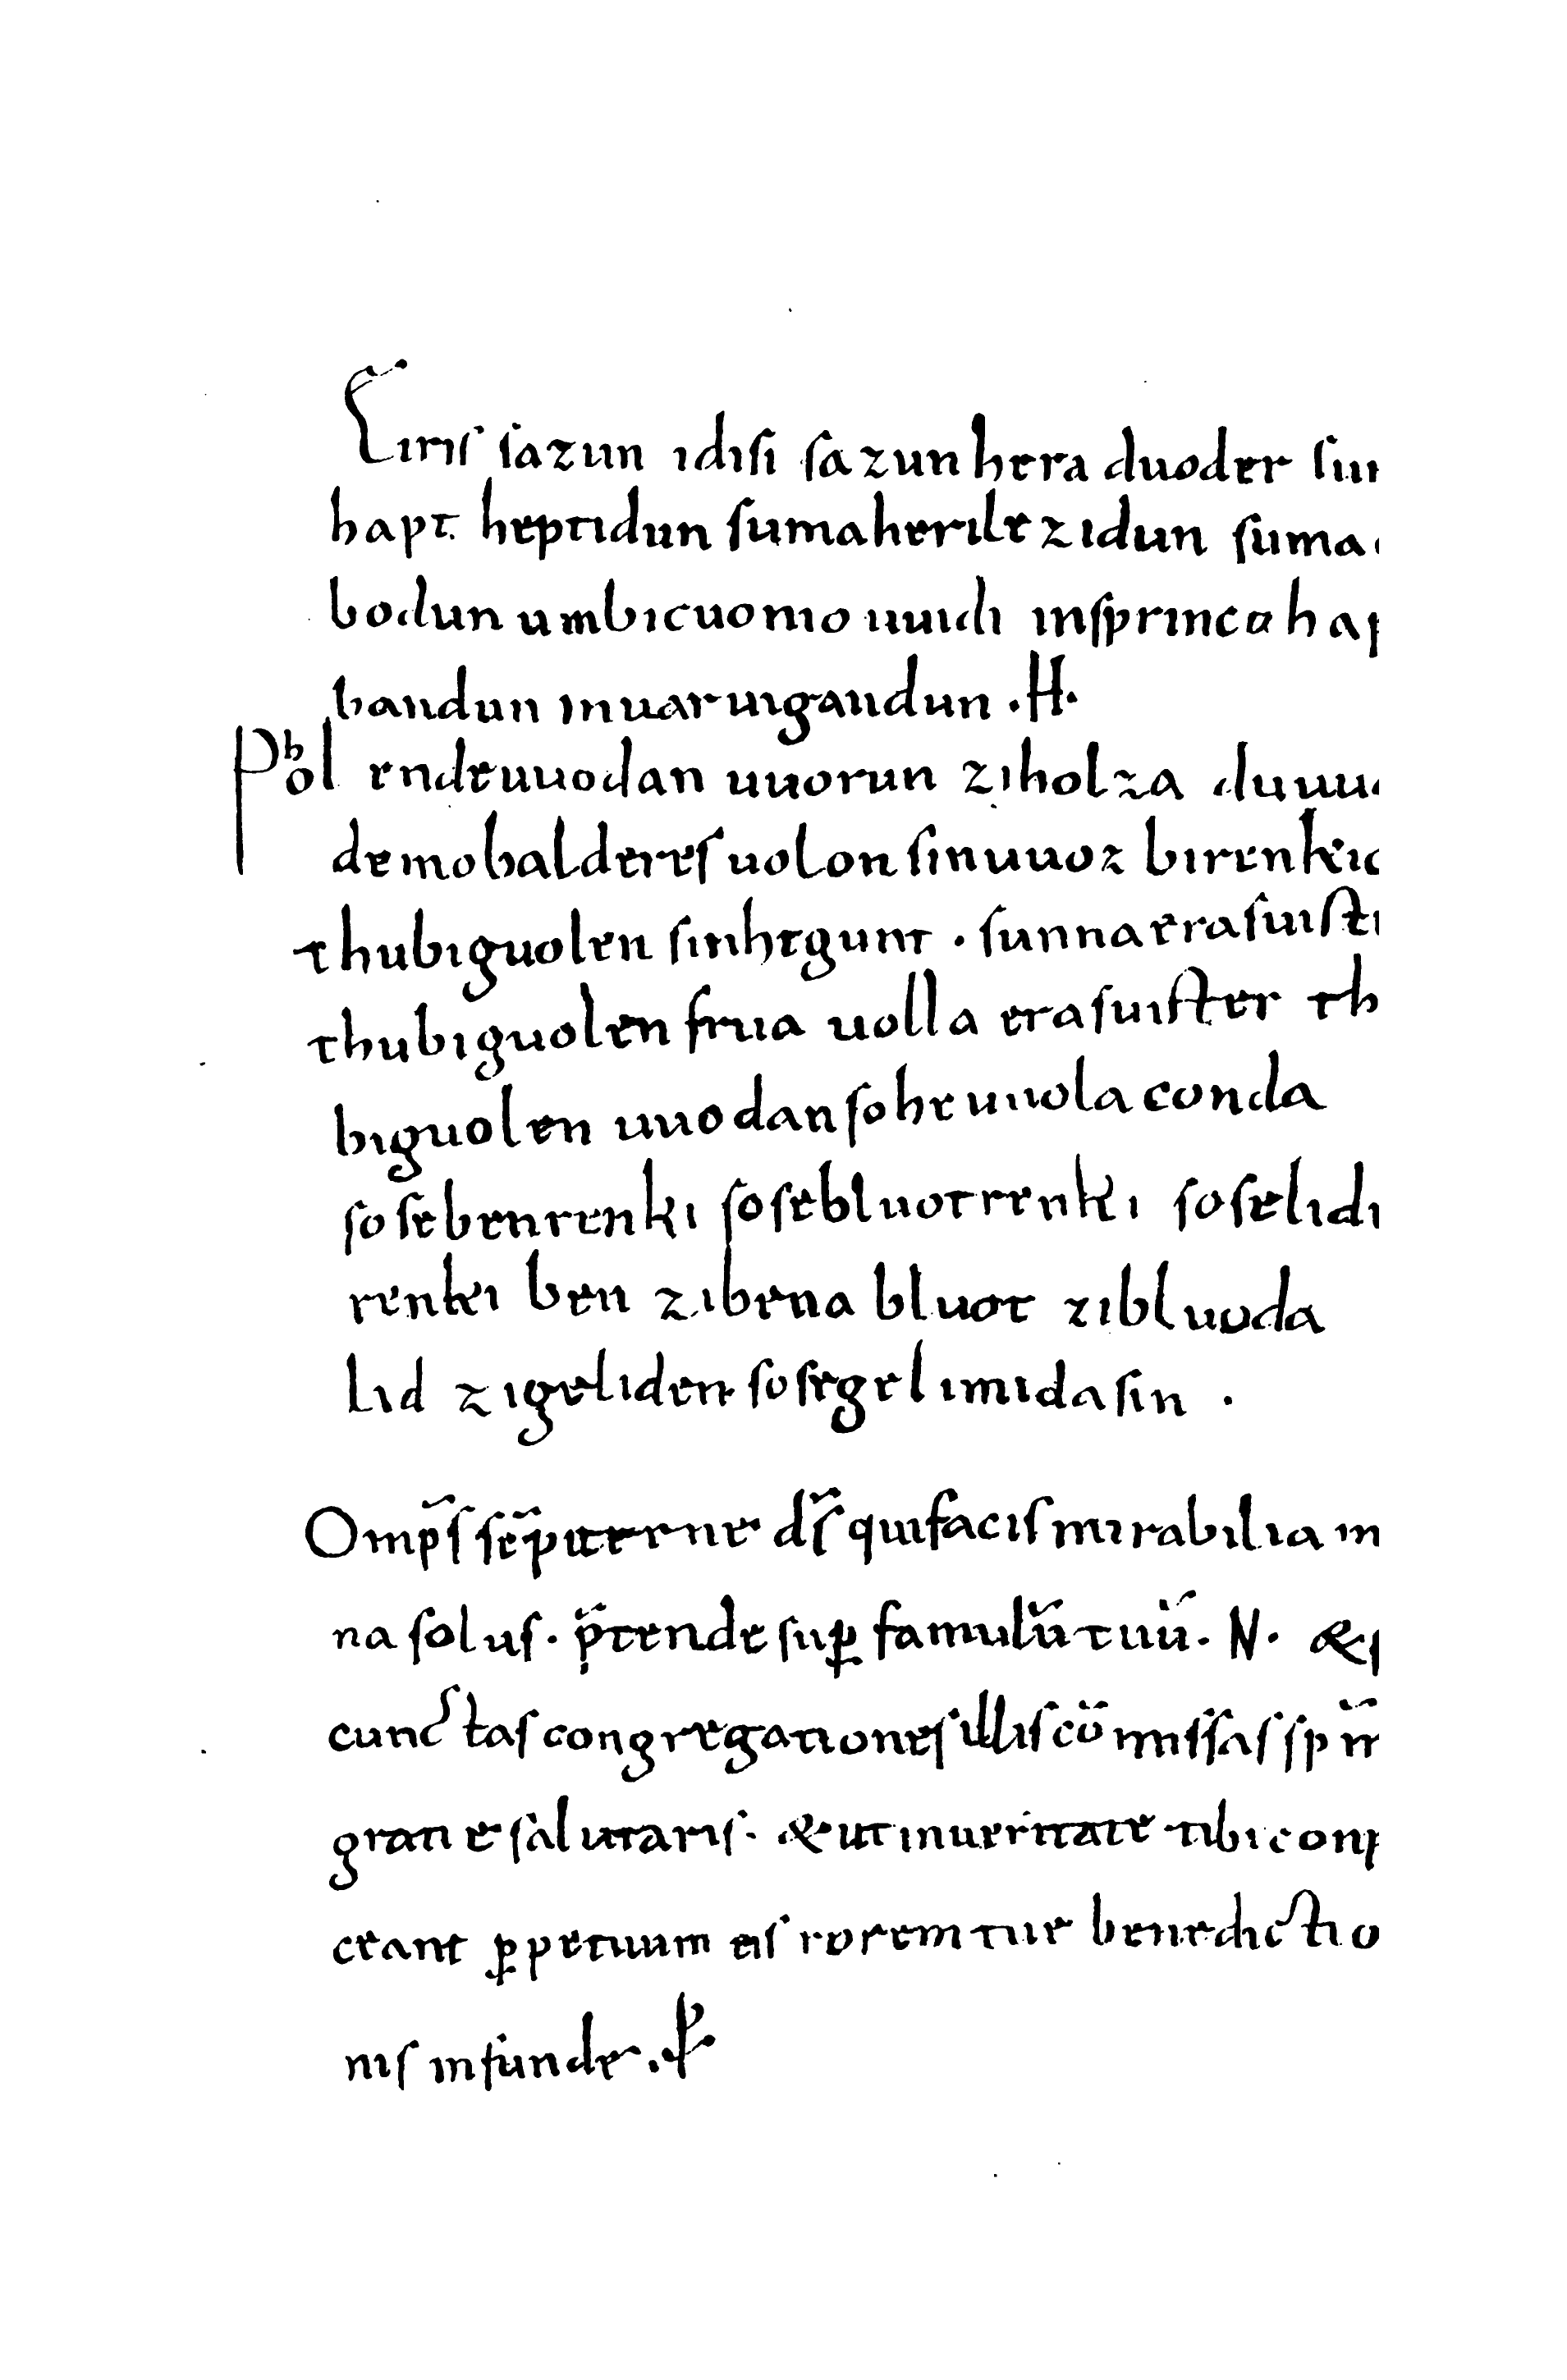 Eiris sazun idisi sazun hera duoder su
hapt heptidun sumaherilezidun suma
bodun umbicuonio uuidi insprinc ha
bandun inuar uigandun .H.
Phol endeuuodan uuorun ziholza du uu
demobalderesuolon sinuuoz birenki
thubiguolen sinhtgunt . sunnaerasuist
thubiguolen frua uolla erasuister th
biguolen uuodan sohe uuola conda
sosebenrenki sosebluotrenki soselidi
renki ben zibena bluot zibluoda
lid zigeliden sosegelimidasin .
Omp̄s sēpiterne d̄s quifacis mirabilia m
na solus . p̄tende suꝑ famulū tuū . N . &
cunctas congregationes illis cōmissas sp̄m
gratie salutaris . & ut inueritate tibi con
ceant ꝑpetuum eis rorem tue benedictio
nis infunde .